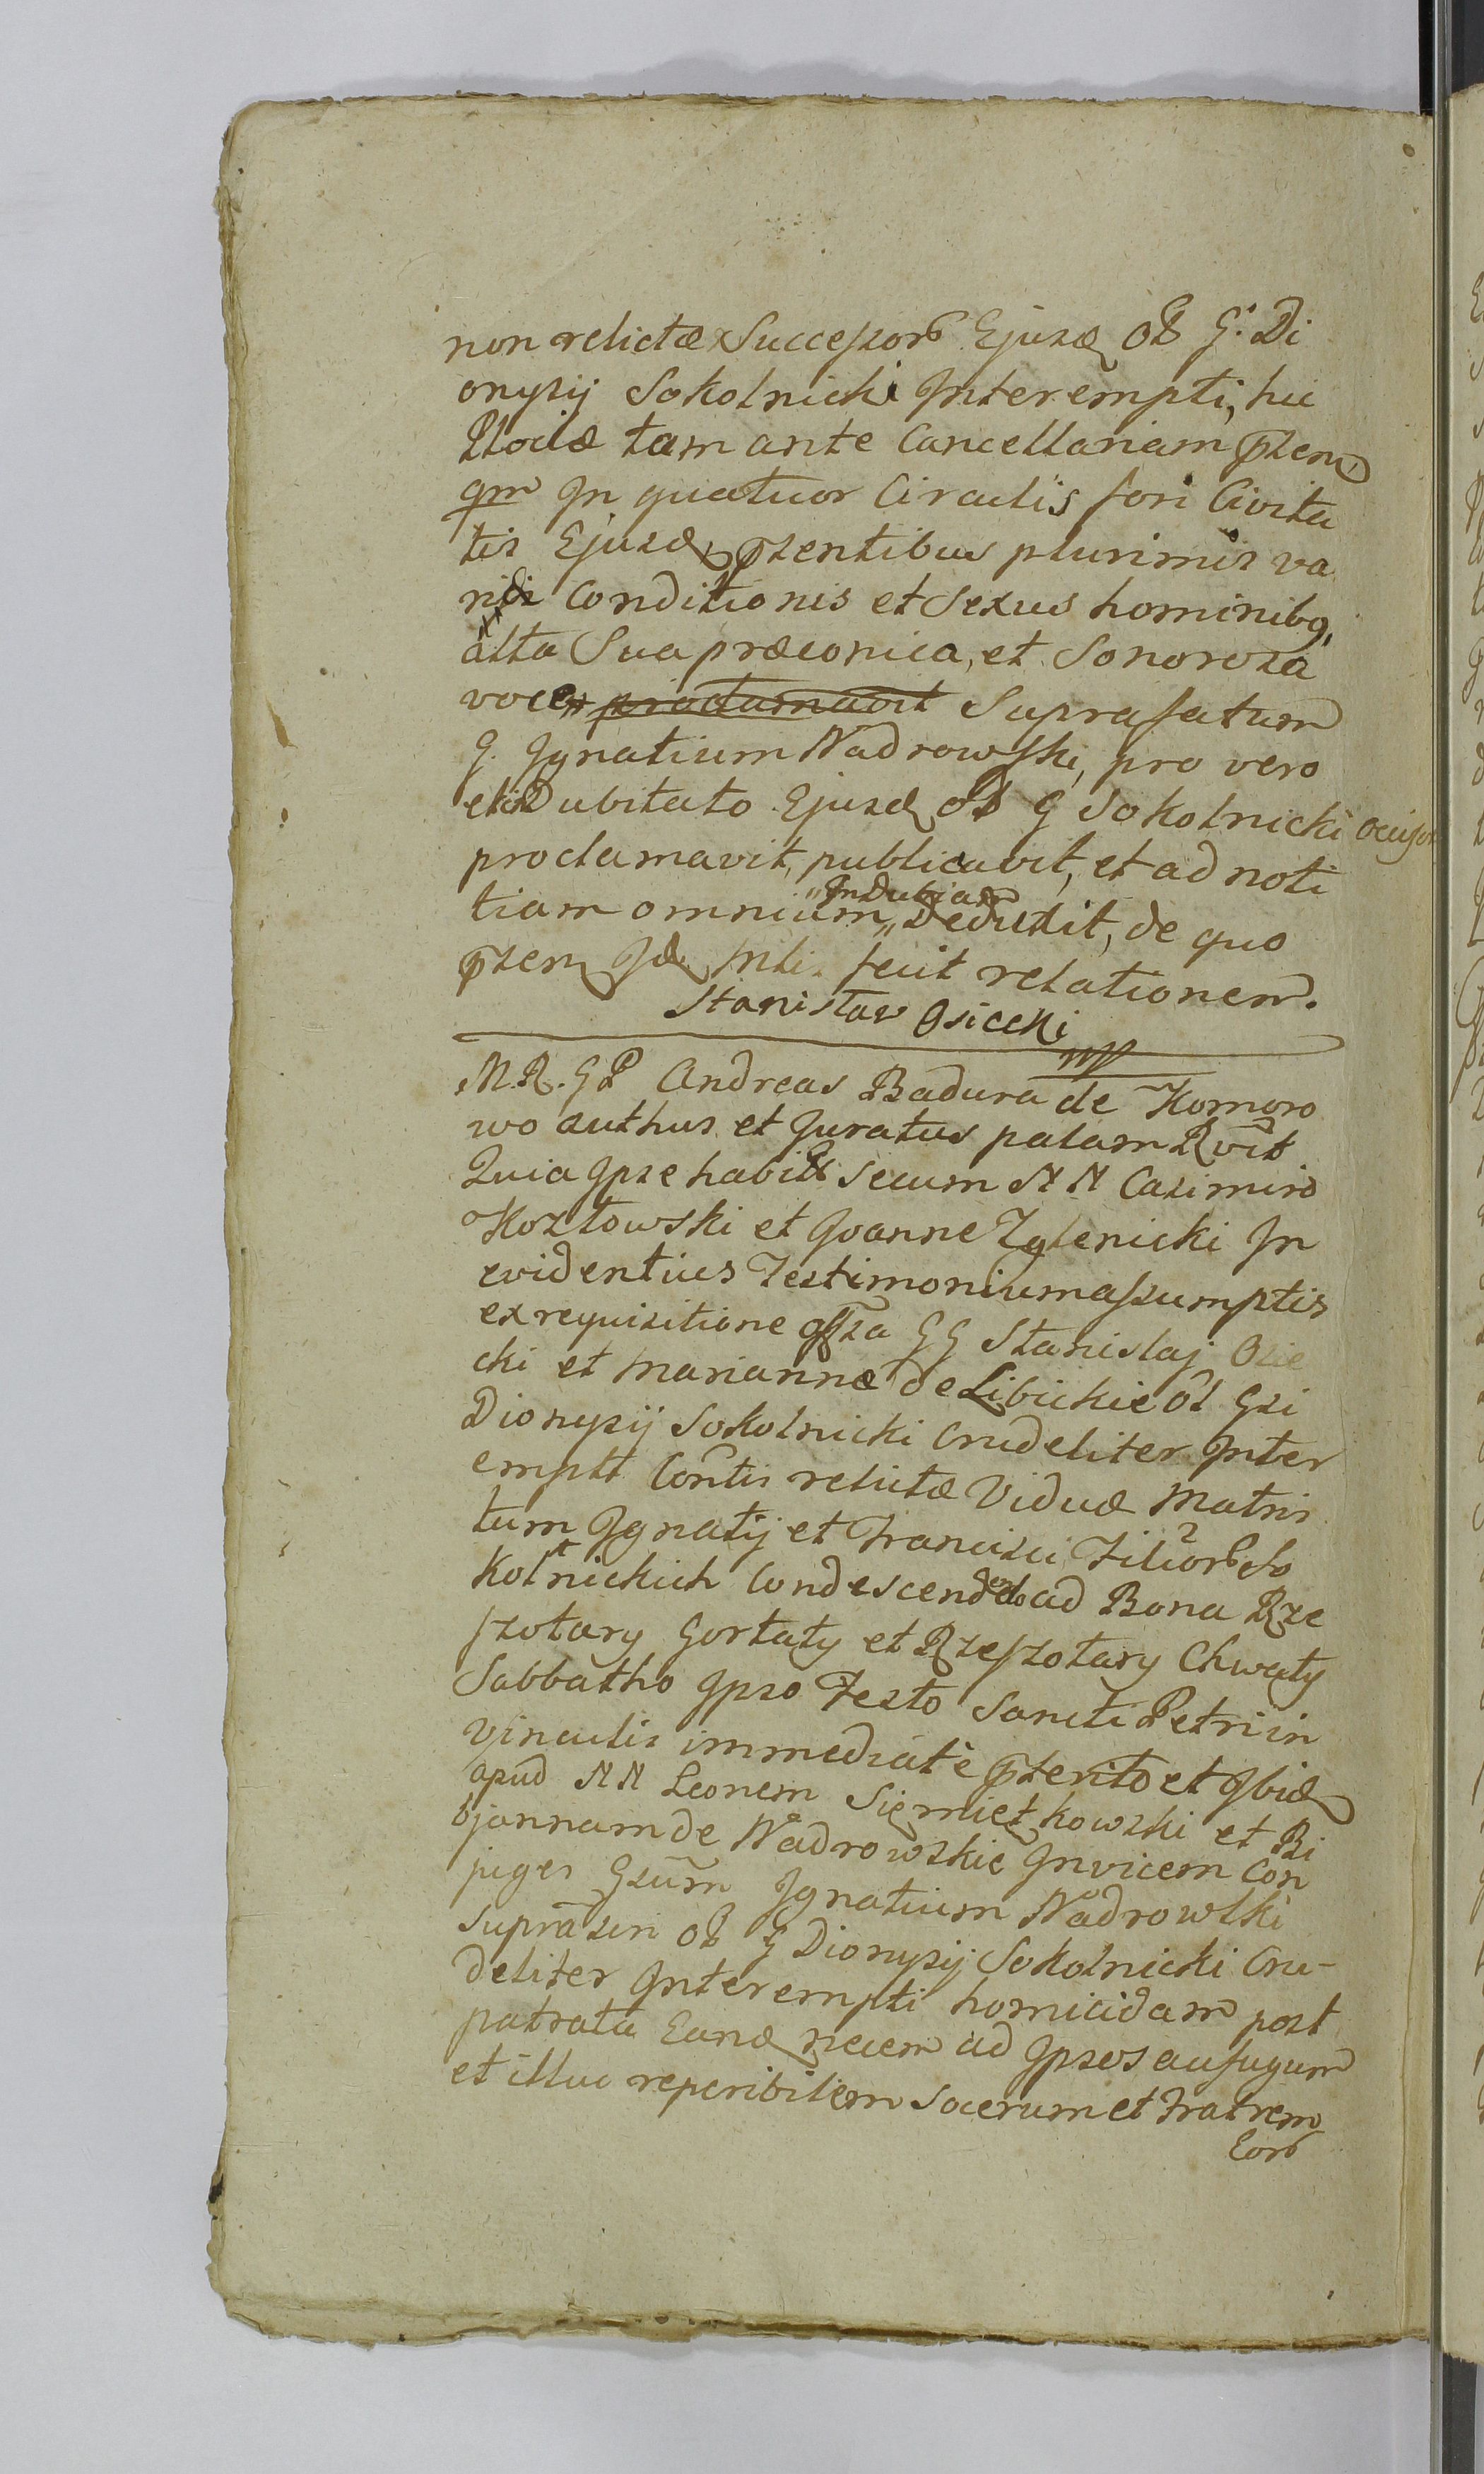 non relictæ Successorb Ejusd Ol G: Di
onysij Sokolnicki Interempti, hic
Plociæ tam ante Cancellariam pstem
qm In quatuor Circulis fori Civita
tis Ejusd, pstentibus plurimis va
rii Conditionis et Sexus hominibq,
alta Sua præconica, et Sonorosa
voce, proclamavit Suprafatum
G. Ignatium Nadrowski, pro vero
et inDubitato Ejusd Ol G Sokolnicki
proclamavit, publicavit, et ad noti
tiam omnium „Indubiam„ Deduxit, de quo
psens Id Mli. fecit relationem.
Stanisław Osiecki
mp
M.R. G P Andreas Badura de Komoro
wo authus et Juratus palam Rvit
Quia Ipse habitis secum N N Casimiro
Kozłowski et Joanne Zglenicki In
evidentius Testimonium assumptis
ex requisitione G G Stanislaj Osie
cki et Mariannæ de Libickie Ol Gsi
Dionysij Sokolnicki Crudeliter Inter
empti Contis relictæ Viduæ Matris
tum Ignatij et Francisci Filiorb So
kolnickich Condescendendo ad Bona Rze
szotary Gortaty et Rzeszotary Chwały
Sabbatho Ipso Festo Sancti Petri in
Vinculis immediatè pterito et Ibid
apud N N Leonem Siemiętkowski et Bi
bjannam de Nadrowskie Invicem Con
juges Gsum Ignatium Nadrowski
supra scri Ol G Dionysij Sokolnicki Cru-
deliter Interempti homicidam post
patratā Eand necem ad Ipsos aufugum
et illuc reperibilem Socerum et Fratrem
Eorb